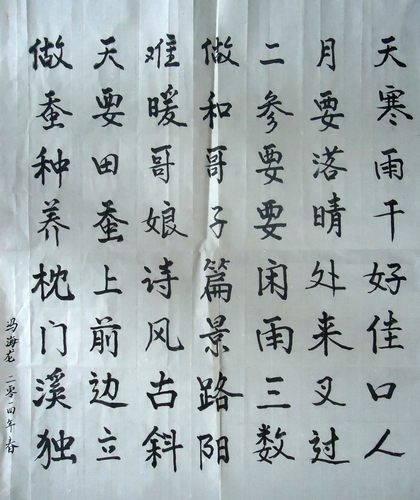 天寒雨干好佳口人
月要落晴处来又过
二参要要闲雨三数
做和哥子篇景路阳
难暖哥娘诗风古斜
天要田蚕上前边立
做蚕种养枕门溪独
冯海龙二零一四年春